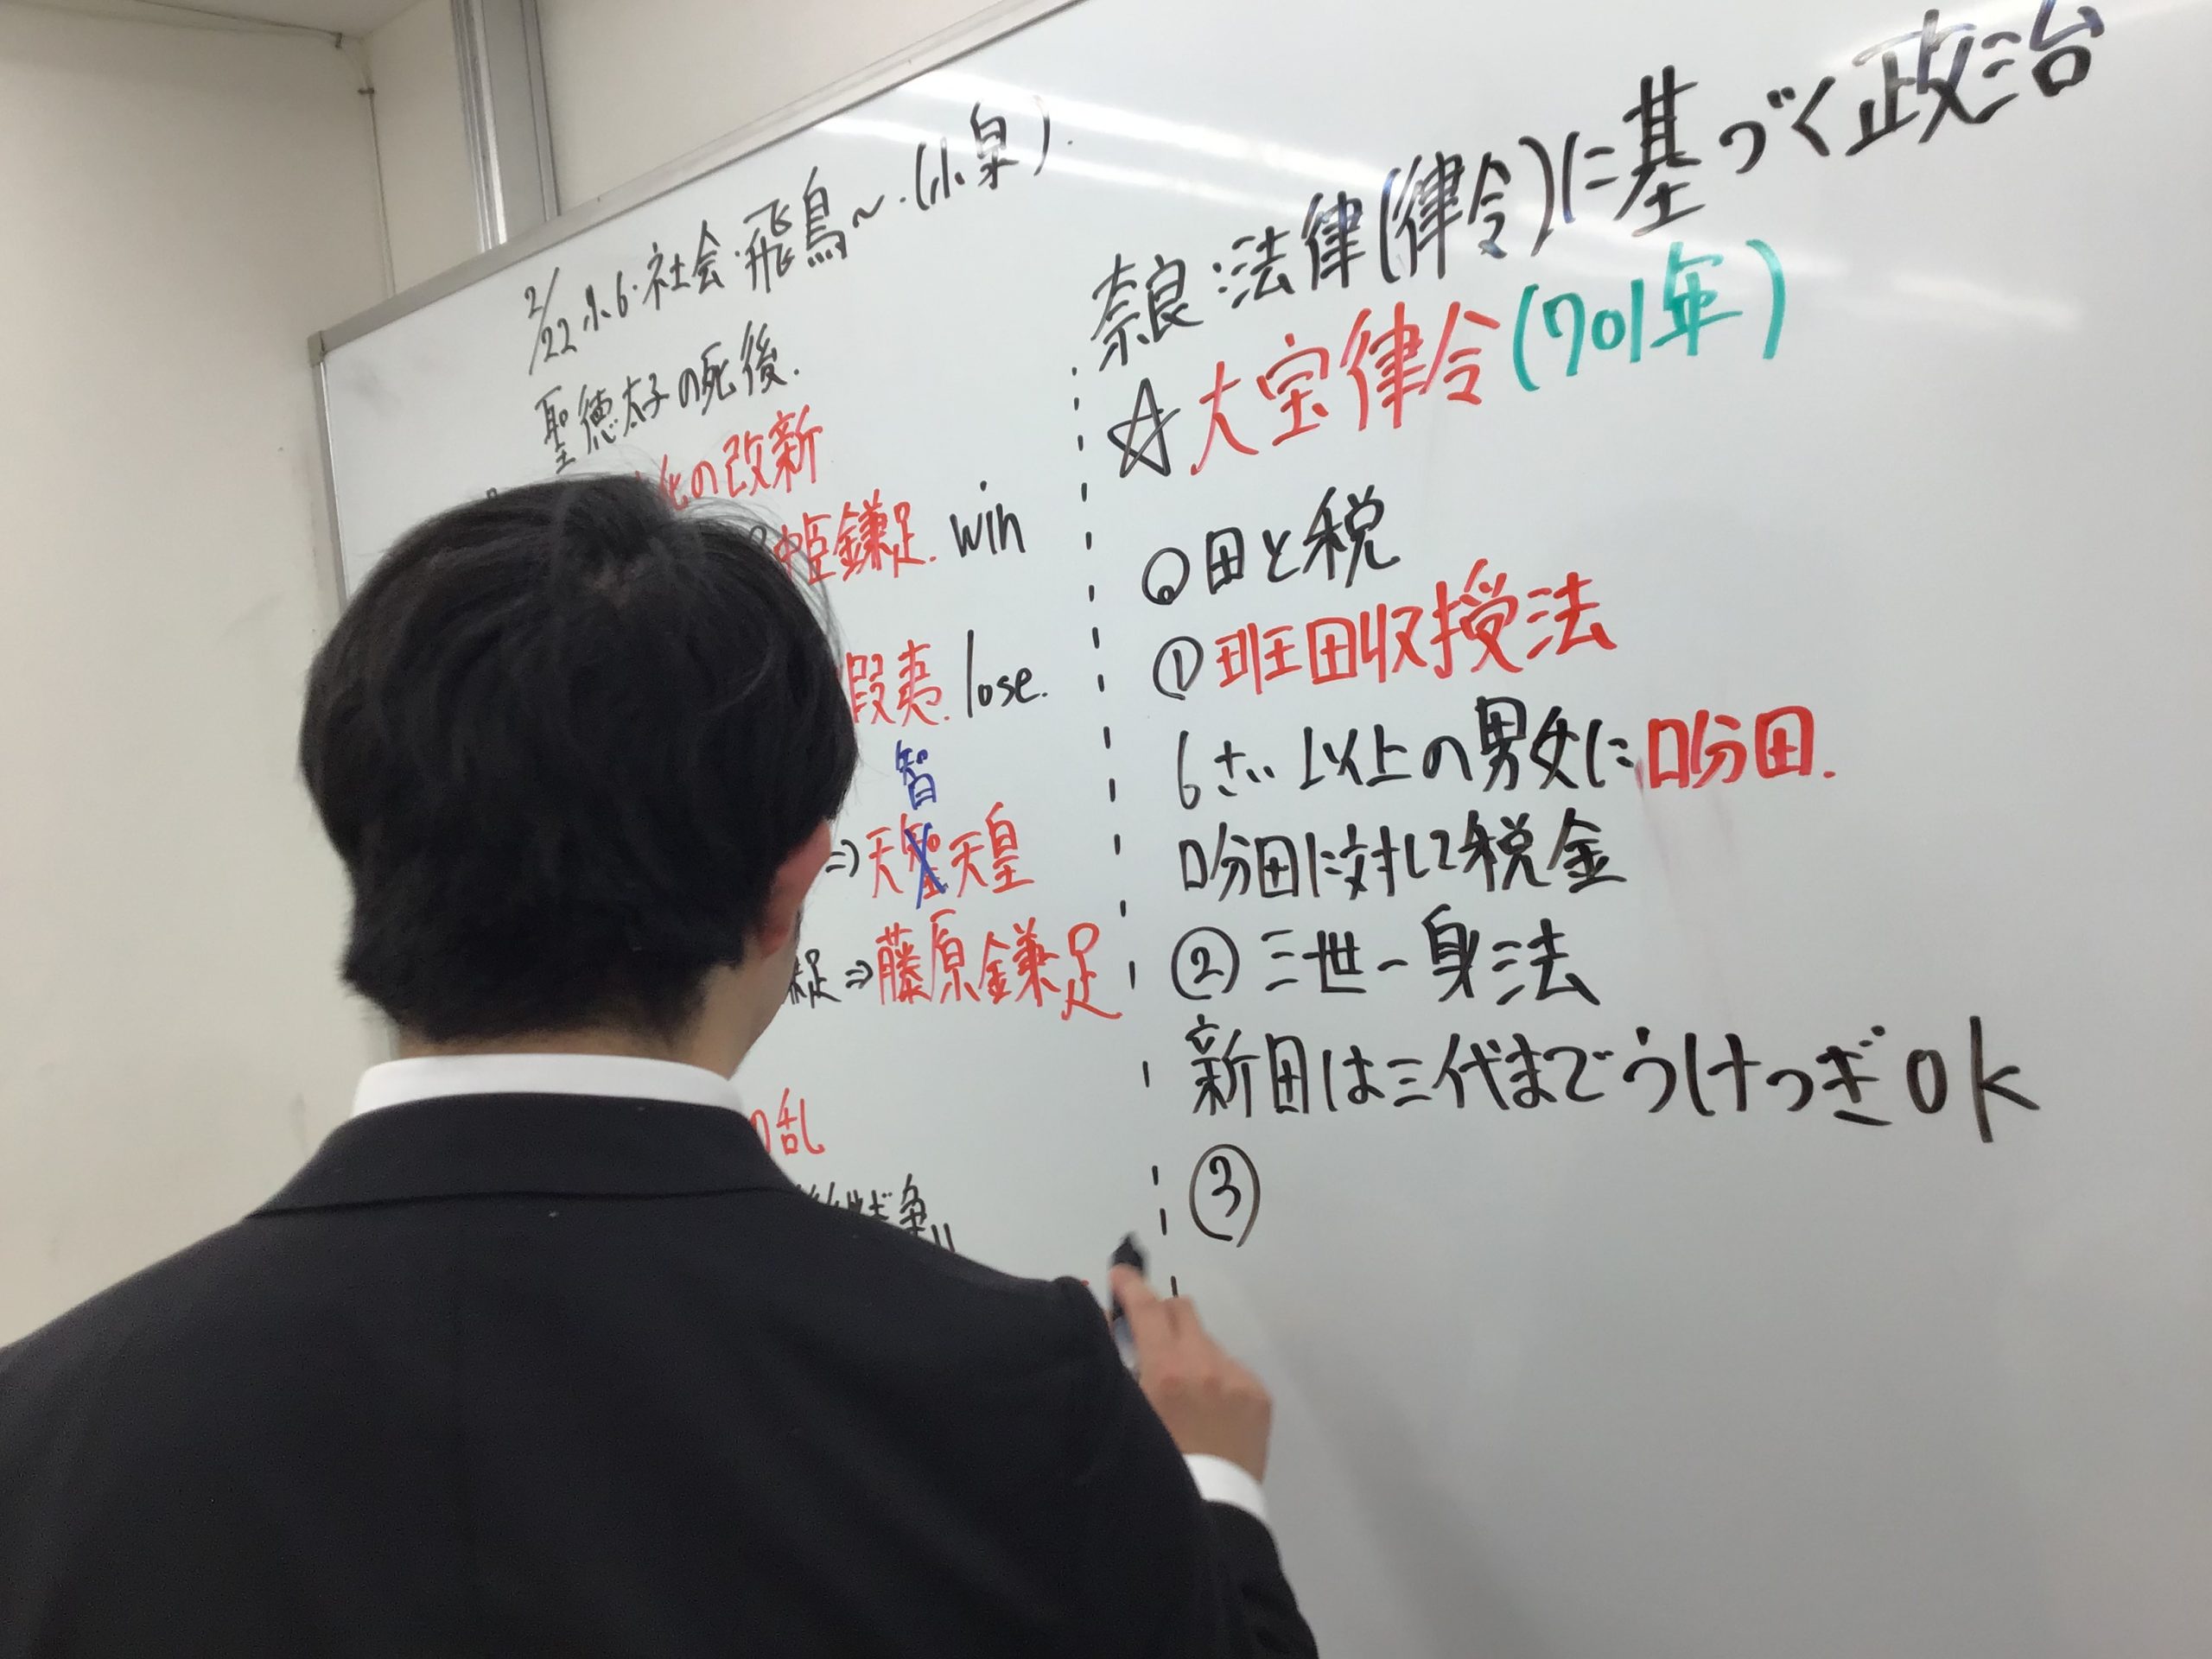 2/22 小6・社会・飛鳥～.(小泉).
聖徳太子の死後.
化の改新
中臣鎌足. win
蝦夷. lose.
智
⇒天聖天皇
足⇒藤原鎌足
の乱
争い
奈良:法律(律令)に基づく政治
☆大宝律令(701年)
◎田と税
①班田収授法
6さい以上の男女に口分田.
口分田に対して税金
②三世一身法
新田は三代までうけつぎok
③